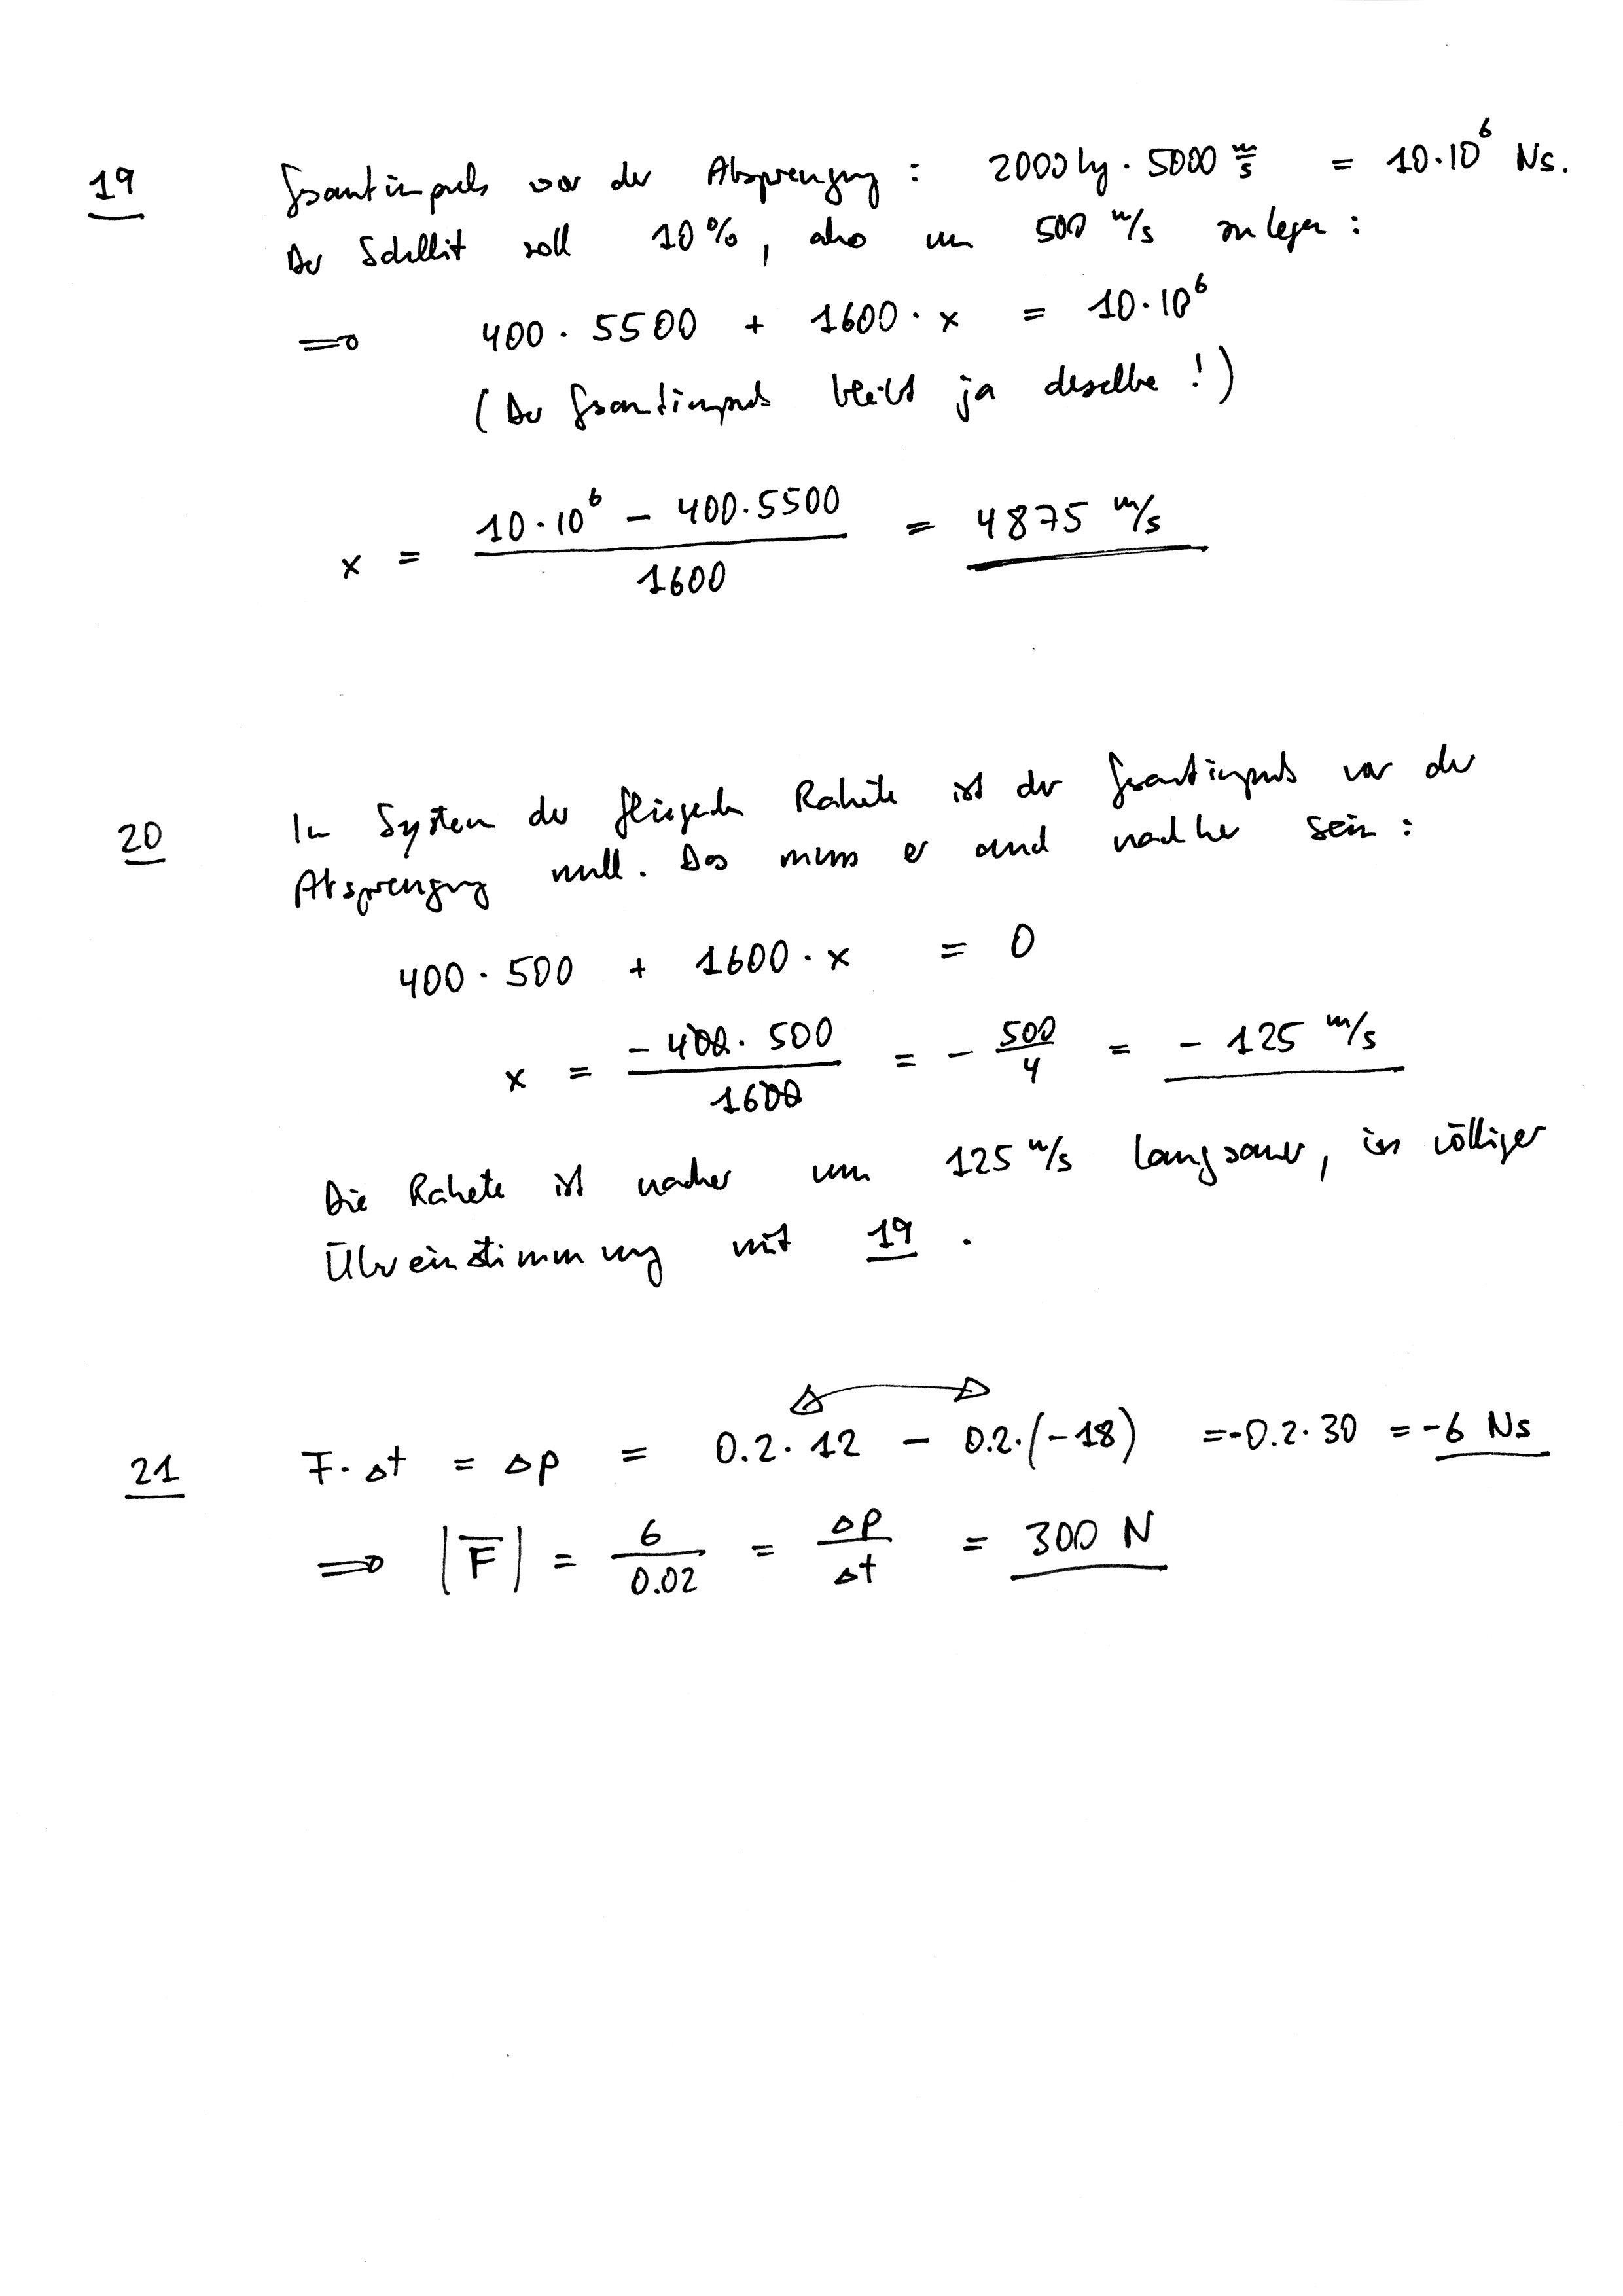 19 Gesamtimpuls vor der Absprengung : 2000 kg · 5000 m/s = 10·10⁶ Ns.
Der Satellit soll 10%, also um 500 m/s zulegen :
⇒ 400 · 5500 + 1600 · x = 10·10⁶
(Der Gesamtimpuls bleibt ja derselbe !)
x = (10·10⁶ − 400·5500) / 1600 = 4875 m/s
20 Im System der fliegenden Rakete ist der Gesamtimpuls vor der
Absprengung null. Das muss er auch nachher sein :
400 · 500 + 1600 · x = 0
x = (−400 · 500) / 1600 = − 500/4 = − 125 m/s
Die Rakete ist nachher um 125 m/s langsamer, in völliger
Übereinstimmung mit 19 .
21 F · Δt = Δp = 0.2 · 12 − 0.2·(−18) = −0.2 · 30 = −6 Ns
⇒ |F̅| = 6/0.02 = Δp/Δt = 300 N